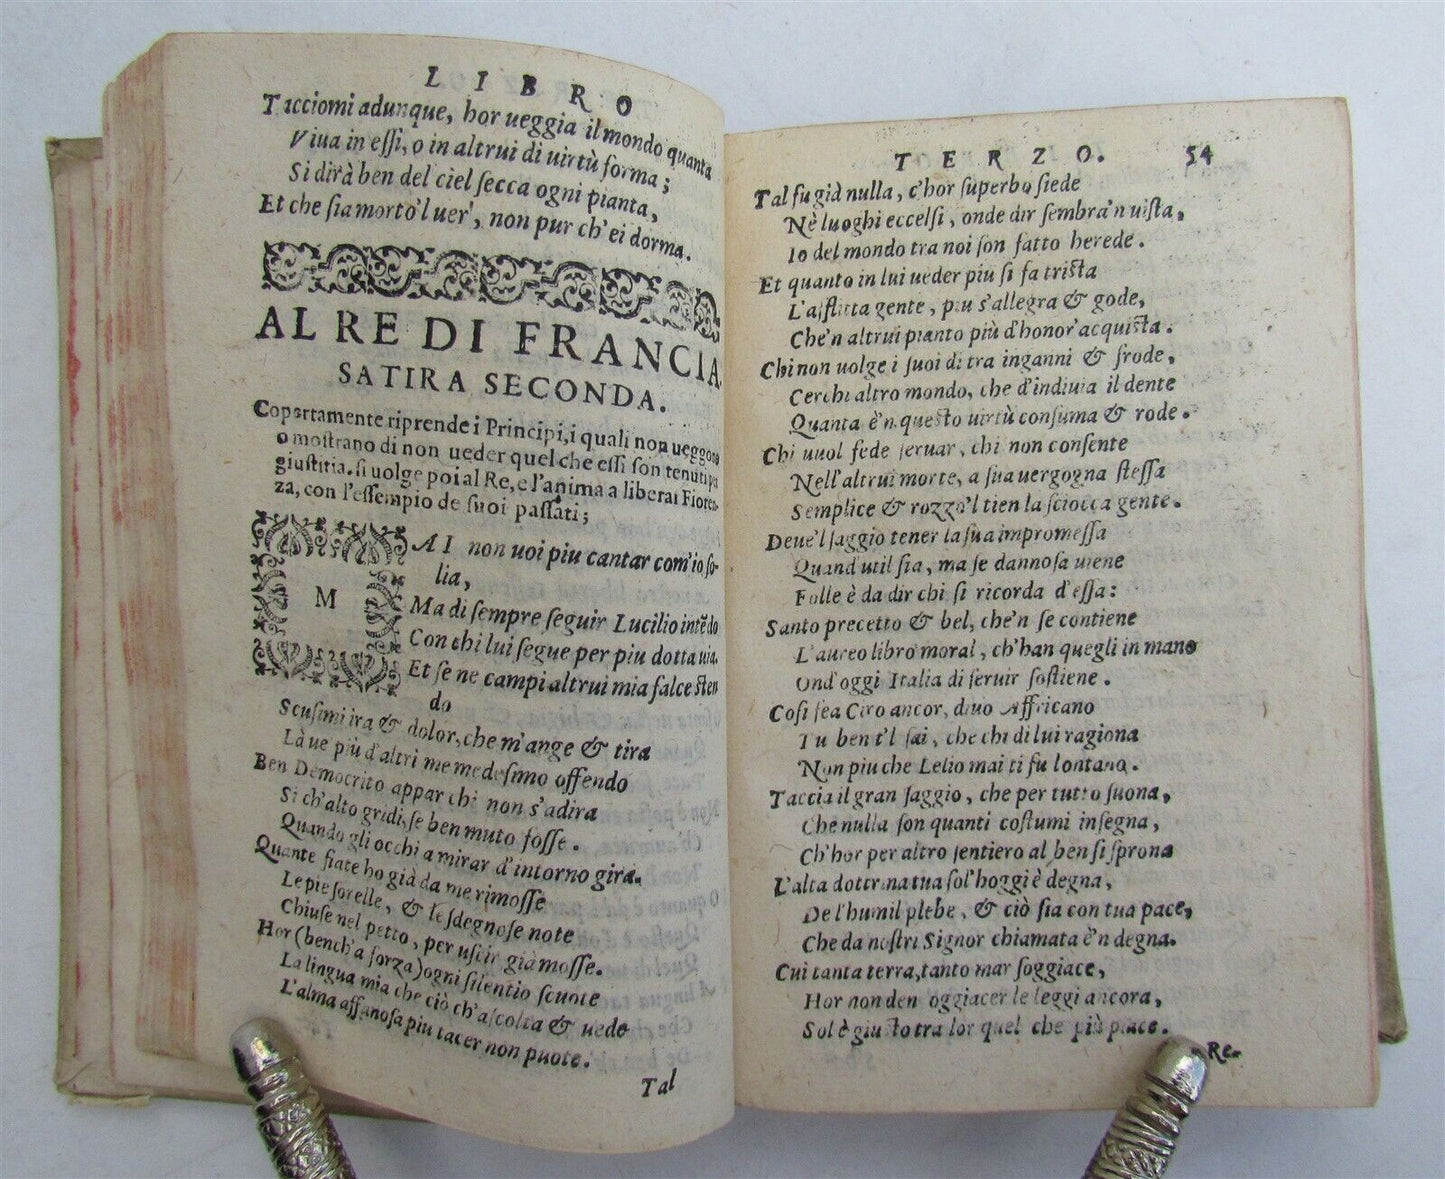 LIBRO
Tacciomi adunque, hor ueggia il mondo quanta
Viua in eſſi, o in altrui di uirtù forma;
Si dirà ben del ciel ſecca ogni pianta,
Et che ſia morto'l uer', non pur ch'ei dorma.
AL RE DI FRANCIA.
SATIRA SECONDA.
Copertamente riprende i Principi, i quali non ueggono
o moſtrano di non ueder quel che eſſi ſon tenuti per
giuſtitia. ſi uolge poi al Re, e l'anima a liberar Fioren-
za, con l'eſſempio de ſuoi paſſati;
MAI non uoi piu cantar com'io ſo-
lia,
Ma di ſempre ſeguir Lucilio intēdo
Con chi lui ſegue per piu dotta uia.
Et ſe ne campi altrui mia falce ſten
do
Scuſimi ira & dolor, che m'ange & tira
Là ue più d'altri me medeſimo offendo
Ben Democrito appar chi non s'adira
Si ch'alto gridi, ſe ben muto foſſe.
Quando gli occhi a mirar d'intorno gira.
Quante fiate ho già da me rimoſſe
Le pie ſorelle, & le ſdegnoſe note
Chiuſe nel petto, per uſcir già moſſe.
Hor (bench'a forza) ogni ſilentio ſcuote
La lingua mia che ciò ch'aſcolta & uede
L'alma affanoſa piu tacer non puote.
Tal
TERZO. 54
Tal fu già nulla, c'hor ſuperbo ſiede
Nè luoghi eccelſi, onde dir ſembra'n uiſta,
Io del mondo tra noi ſon fatto herede.
Et quanto in lui ueder piu ſi fa triſta
L'afflitta gente, piu s'allegra & gode,
Che'n altrui pianto più d'honor'acquiſta.
Chi non uolge i ſuoi dì tra inganni & frode,
Cerchi altro mondo, che d'indiuia il dente
Quanta è'n queſto uirtù conſuma & rode.
Chi uuol fede ſeruar, chi non conſente
Nell'altrui morte, a ſua uergogna ſteſſa
Semplice & rozzo'l tien la ſciocca gente.
Deue'l ſaggio tener la ſua impromeſſa
Quand'util ſia, ma ſe dannoſa uiene
Folle è da dir chi ſi ricorda d'eſſa:
Santo precetto & bel, che'n ſe contiene
L'aureo libro moral, ch'han quegli in mano
Ond'oggi Italia di ſeruir ſoſtiene.
Coſi ſea Ciro ancor, diuo Affricano
Tu ben t'l ſai, che chi di lui ragiona
Non piu che Lelio mai ti fu lontano.
Taccia il gran ſaggio, che per tutto ſuona,
Che nulla ſon quanti coſtumi inſegna,
Ch'hor per altro ſentiero al ben ſi ſprona
L'alta dottrina tua ſol'hoggi è degna,
De l'humil plebe, & ciò ſia con tua pace,
Che da noſtri Signor chiamata è'n degna.
Cui tanta terra, tanto mar ſoggiace,
Hor non den ſoggiacer le leggi ancora,
Sol è giuſto tra lor quel che più piace.
Re-